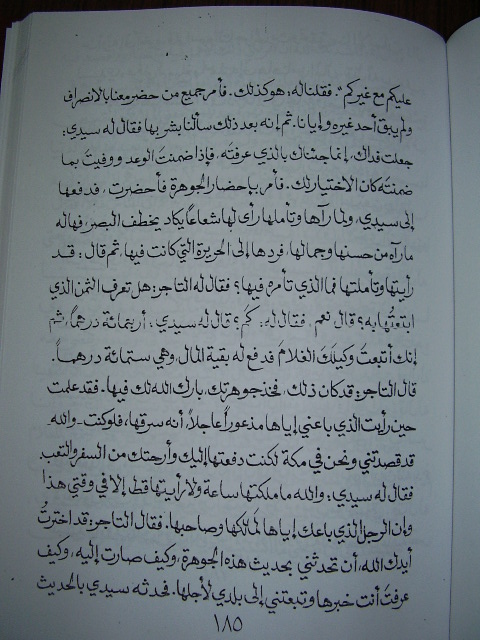 عليكم مع غيركم". فقلنا له: هو كذلك. فأمر جميع من حضر معنا بالانصراف
ولم يبق أحد غيره وإيانا. ثم إنه بعد ذلك سألنا بشر بها فقال له سيدي:
جعلت فداك، إنما جئناك بالذي عرفته، فإذا ضمنتَ الوعد ووفيتَ بما
ضمنته كان الاختيار لك. فأمر بإحضار الجوهرة فأحضرت، فدفعها
إلى سيدي، ولما رآها وتأملها رأى لها شعاعاً يكاد يخطف البصر، فهاله
ما رآه من حسنها وجمالها، فردها إلى الحريرة التي كانت فيها، ثم قال: قد
رأيتها وتأملتها فما الذي تأمره فيها؟ فقال له التاجر: هل تعرف الثمن الذي
ابتعتُها به؟ قال نعم، فقال له: كم؟ قال له سيدي: أربمائة درهماً، ثم
إنك أتبعتَ وكيلَك الغلامَ فدفع له بقية المال، وهي ستمائة درهماً.
قال التاجر: قد كان ذلك، فخذ جوهرتك، بارك الله لك فيها. فقد علمت
حين رأيت الذي باعني إياها مذعوراً عاجلاً، أنه سرقها، فلو كنت -والله-
قد قصدتني ونحن في مكة لكنت دفعتها إليك وأرحتك من السفر والتعب
فقال له سيدي: والله ما ملكتها ساعة ولا رأيتها قط إلا في وقتي هذا
وإن الرجل الذي باعك إياها لمَالكها وصاحبها. فقال التاجر: قد اخترتُ
أيدك الله، أن تحدثني بحديث هذه الجوهرة، وكيف صارت إليه، وكيف
عرفتَ أنت خبرها وتبعتني إلى بلدي لأجلها. فحدثه سيدي بالحديث
١٨٥